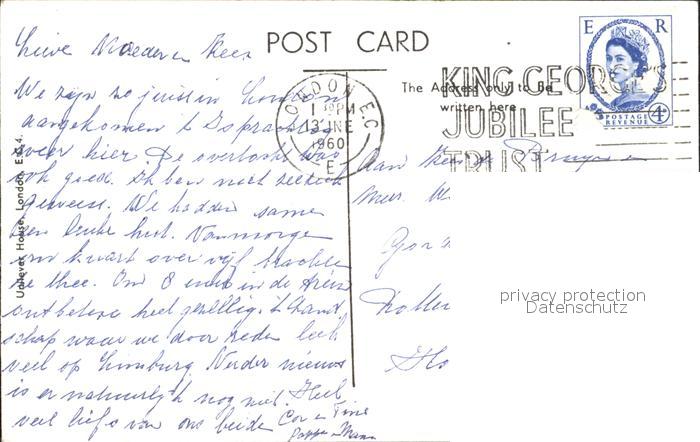 Lieve Moeder en Kees
We zijn zo juist in Londen
aangekomen 't Is prachtig
weer hier. De overtocht was
ook goed. Ik ben niet zeeziek
geweest. We hadden samen
een leuke hut. Vanmorgen
om kwart over vijf brachten
ze thee. Om 8 uur in de trein
ontbeten heel gezellig. 't Land
schap waar we door reden leek
veel op Limburg. Verder nieuws
is er natuurlijk nog niet. Heel
veel liefs van ons beiden Cor en Tine
Pappa en Mama
POST CARD
The Address only to be
written here
Unilever House, London, E.C.4.
LONDON E.C.
1 PM
13 JUNE
1960
E
KING GEORGE'S
JUBILEE
TRUST
E R
POSTAGE
REVENUE
4D
Aan
Mevr.
privacy protection
Datenschutz